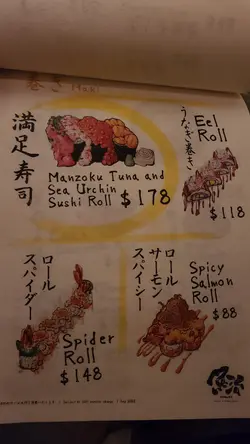 巻き Maki
満足寿司
Manzoku Tuna and
Sea Urchin
Sushi Roll $178
うなぎ巻き
Eel
Roll
$118
スパイダー
ロール
Spider
Roll
$148
スパイシー
サーモン
ロール
Spicy
Salmon
Roll
$88